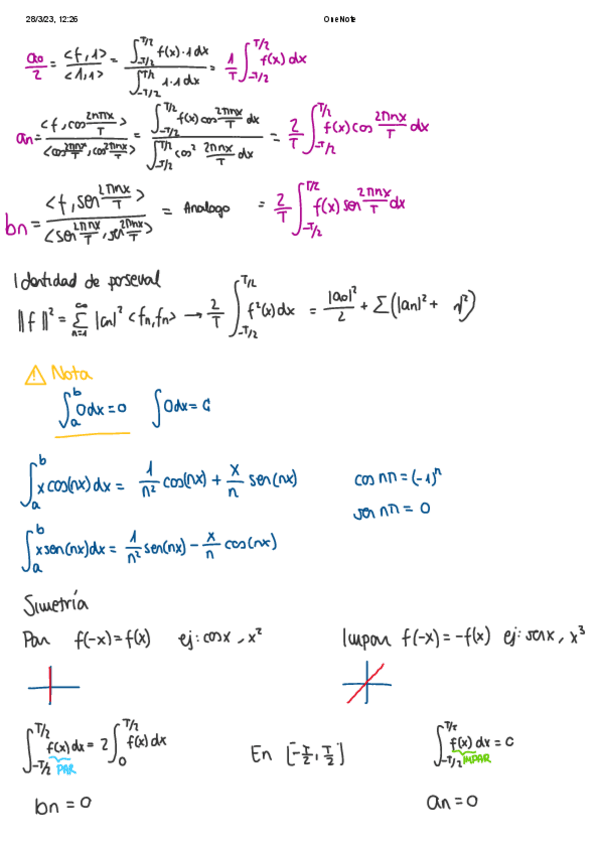 28/3/23, 12:26 OneNote
a₀/2 = <f,1>/<1,1> = ∫_{-T/2}^{T/2} f(x)·1 dx / ∫_{-T/2}^{T/2} 1·1 dx = 1/T ∫_{-T/2}^{T/2} f(x) dx
an = <f, cos 2πnx/T> / <cos 2πnx/T, cos 2πnx/T> = ∫_{-T/2}^{T/2} f(x) cos 2πnx/T dx / ∫_{-T/2}^{T/2} cos² 2πnx/T dx = 2/T ∫_{-T/2}^{T/2} f(x) cos 2πnx/T dx
bn = <f, sen 2πnx/T> / <sen 2πnx/T, sen 2πnx/T> = Analogo = 2/T ∫_{-T/2}^{T/2} f(x) sen 2πnx/T dx
Identidad de parseval
||f||² = Σ_{n=1}^{∞} |cn|² <fn, fn> → 2/T ∫_{-T/2}^{T/2} f²(x) dx = |a₀|²/2 + Σ(|an|² + )
⚠ Nota
∫_a^b 0dx = 0 ∫0dx = C
∫_a^b x cos(nx) dx = 1/n² cos(nx) + x/n sen(nx) cos nπ = (-1)ⁿ
∫_a^b x sen(nx) dx = 1/n² sen(nx) - x/n cos(nx) sen nπ = 0
Simetría
Par f(-x) = f(x) ej: cosx, x² Impar f(-x) = -f(x) ej: senx, x³
∫_{-T/2}^{T/2} f(x) dx = 2 ∫_0^{T/2} f(x) dx En [-T/2, T/2] ∫_{-T/2}^{T/2} f(x) dx = 0
PAR IMPAR
bn = 0 an = 0